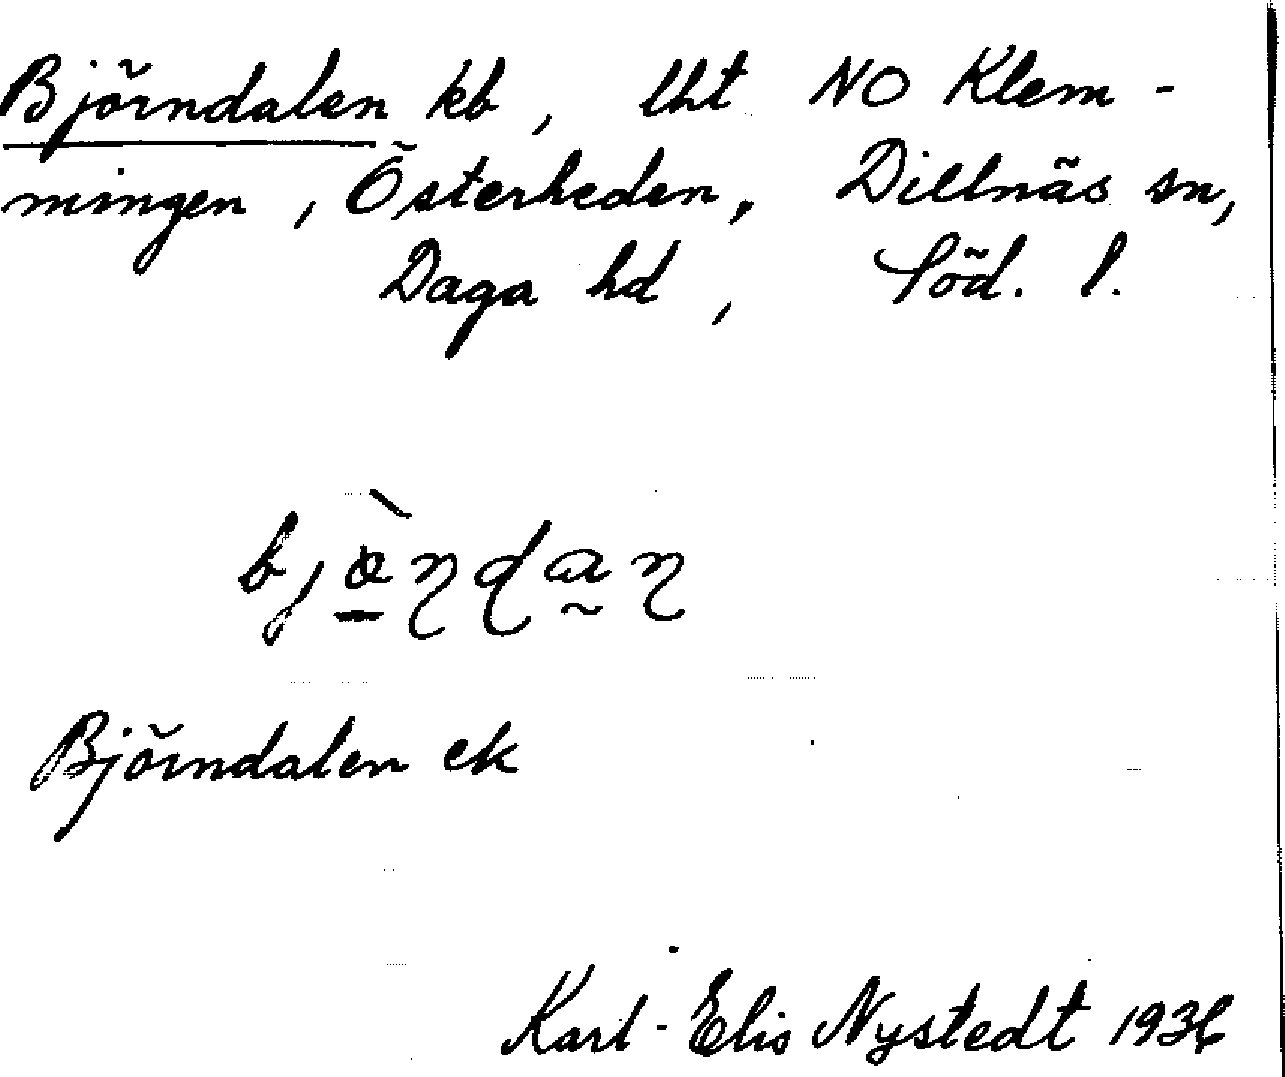 Björndalen kb, lht NO Klem-
mingen, Österheden, Dillnäs sn,
Daga hd, Söd. l.
Björndalen ek
Karl-Elis Nystedt 1936